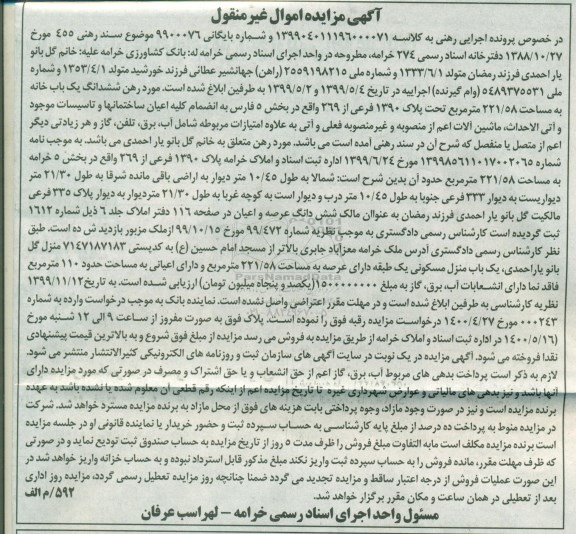 آگهی مزایده اموال غیر منقول
در خصوص پرونده اجرایی رهنی به کلاسه ۱۳۹۹۰۴۰۱۱۱۹۶۰۰۰۰۷۱ و شماره بایگانی ۹۹۰۰۰۷۶ موضوع سند رهنی ۴۵۵ مورخ
۱۳۸۸/۱۰/۲۷ دفترخانه اسناد رسمی ۲۷۴ خرامه، مطروحه در واحد اجرای اسناد رسمی خرامه له: بانک کشاورزی خرامه علیه: خانم گل بانو
یار احمدی فرزند رمضان متولد ۱۳۳۲/۶/۱ و شماره ملی ۲۵۵۹۱۹۸۲۱۵ (راهن) جهانشیر عطائی فرزند خورشید متولد ۱۳۵۳/۴/۱ و شماره
ملی ۵۴۸۹۳۷۵۵۳۱ (وام گیرنده) اجراییه در تاریخ ۱۳۹۹/۵/۴ و ۱۳۹۹/۵/۲ به طرفین ابلاغ شده است. مورد رهن ششدانگ یک باب خانه
به مساحت ۲۲۱/۵۸ مترمربع تحت پلاک ۱۳۹۰ فرعی از ۳۶۹ واقع در بخش ۵ فارس به انضمام کلیه اعیان ساختمانها و تاسیسات موجود
و آتی الاحداث، ماشین آلات اعم از منصوبه و غیرمنصوبه فعلی و آتی به علاوه امتیازات مربوطه شامل آب، برق، تلفن، گاز و هر زیادتی دیگر
اعم از متصل یا منفصل که شرح آن در سند رهنی آمده است می باشد. مورد رهن متعلق به خانم گل بانو یار احمدی می باشد. به موجب نامه
شماره ۱۳۹۹۸۵۶۱۱۰۱۷۰۰۲۰۶۵ مورخ ۱۳۹۹/۶/۲۴ اداره ثبت اسناد و املاک خرامه پلاک ۱۳۹۰ فرعی از ۳۶۹ واقع در بخش ۵ خرامه
به مساحت ۲۲۱/۵۸ مترمربع حدود آن بدین شرح است: شمالا به طول ۱۰/۴۵ متر دیوار به اراضی باقی مانده شرقا به طول ۲۱/۳۰ متر
دیواریست به دیوار ۳۳۳ فرعی جنوبا به طول ۱۰/۴۵ متر درب و دیوار است به کوچه غربا به طول ۲۱/۳۰ متر دیوار به دیوار پلاک ۳۳۵ فرعی
مالکیت گل بانو یار احمدی فرزند رمضان به عنوان مالک شش دانگ عرصه و اعیان در صفحه ۱۱۶ دفتر املاک جلد ۶ ذیل شماره ۱۶۱۲
ثبت گردیده است کارشناس رسمی دادگستری به موجب نظریه شماره ۹۹/۴۷۲ مورخ ۹۹/۱۰/۱۵ ازملک مزبور بازدید ش ده است. طبق
نظر کارشناس رسمی دادگستری آدرس ملک خرامه معزآباد جابری بالاتر از مسجد امام حسین (ع) به کدپستی ۷۱۴۷۱۸۷۱۸۳ منزل گل
بانو یاراحمدی، یک باب منزل مسکونی یک طبقه دارای عرصه به مساحت ۲۲۱/۵۸ مترمربع و دارای اعیانی به مساحت حدود ۱۱۰ مترمربع
فاقد نما دارای انشعابات آب، برق، گاز به مبلغ ۱۵۰۰۰۰۰۰۰۰ (یکصد و پنجاه میلیون تومان) ارزیابی شده است. به تاریخ ۱۳۹۹/۱۱/۱۲
نظریه کارشناسی به طرفین ابلاغ شده است و در مهلت مقرر اعتراضی واصل نشده است. نماینده بانک به موجب درخواست وارده به شماره
۰۰۰۲۴۳ مورخ ۱۴۰۰/۴/۲۷ درخواست مزایده رقبه فوق را نموده است. پلاک فوق به صورت مفروز از ساعت ۹ الی ۱۲ شنبه مورخ
(۱۴۰۰/۵/۱۶ در اداره ثبت اسناد و املاک خرامه از طریق مزایده به فروش می رسد مزایده از مبلغ فوق شروع و به بالاترین قیمت پیشنهادی
نقدا فروخته می شود. آگهی مزایده در یک نوبت در سایت آگهی های سازمان ثبت و روزنامه های الکترونیکی کثیرالانتشار منتشر می شود.
لازم به ذکر است پرداخت بدهی های مربوط آب، برق، گاز اعم از حق انشعاب و یا حق اشتراک و مصرف در صورتی که مورد مزایده دارای
آنها باشد و نیز بدهی های مالیاتی و عوارض شهرداری غیره تا تاریخ مزایده اعم از اینکه رقم قطعی آن معلوم شده یا نشده باشد به عهده
برنده مزایده است و نیز در صورت وجود مازاد، وجوه پرداختی بابت هزینه های فوق از محل مازاد به برنده مزایده مسترد خواهد شد. شرکت
در مزایده منوط به پرداخت ده درصد از مبلغ پایه کارشناسی به حساب سپرده ثبت و حضور خریدار یا نماینده قانونی او در جلسه مزایده
است برنده مزایده مکلف است مابه التفاوت مبلغ فروش را ظرف مدت ۵ روز از تاریخ مزایده به حساب صندوق ثبت تودیع نماید و در صورتی
که ظرف مهلت مقرر، مانده فروش را به حساب سپرده ثبت واریز نکند مبلغ مذکور قابل استرداد نبوده و به حساب خزانه واریز خواهد شد در
این صورت عملیات فروش از درجه اعتبار ساقط و مزایده تجدید می گردد ضمنا چنانچه روز مزایده تعطیل رسمی گردد، مزایده روز اداری
بعد از تعطیلی در همان ساعت و مکان مقرر برگزار خواهد شد.
۵۹۲/م الف
مسئول واحد اجرای اسناد رسمی خرامه - لهراسب عرفان